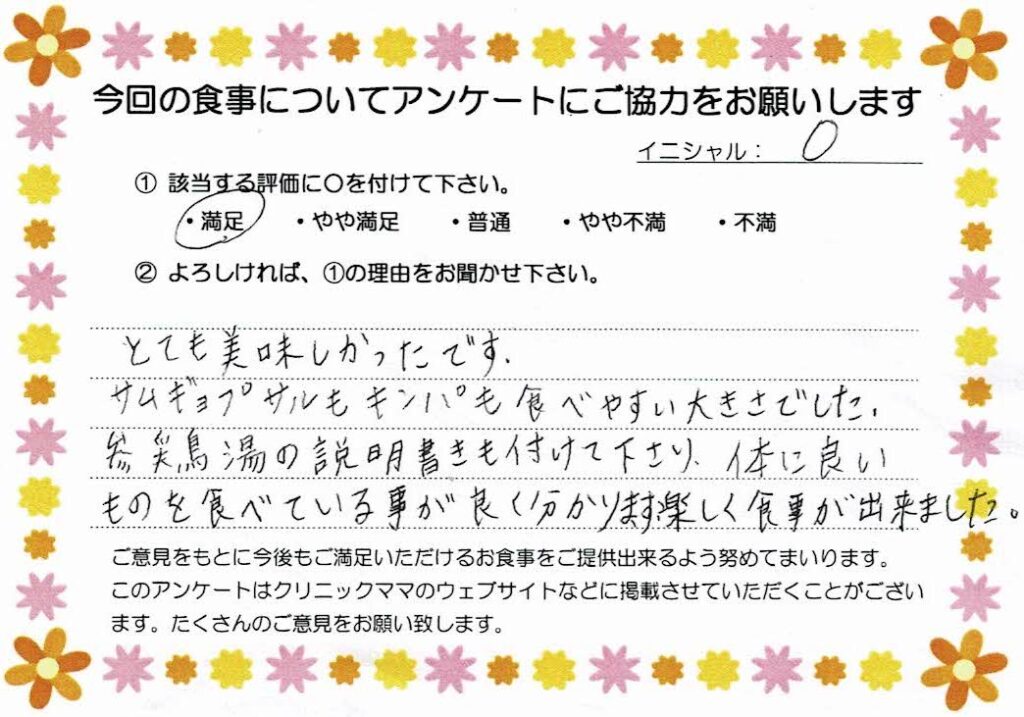 今回の食事についてアンケートにご協力をお願いします
イニシャル： O
① 該当する評価に〇を付けて下さい。
・満足 ・やや満足 ・普通 ・やや不満 ・不満
② よろしければ、①の理由をお聞かせ下さい。
とても美味しかったです.
サムギョプサルもキンパも食べやすい大きさでした.
湯の説明書きも付けて下さり、体に良い
ものを食べている事が良く分かります.楽しく食事が出来ました。
ご意見をもとに今後もご満足いただけるお食事をご提供出来るよう努めてまいります。
このアンケートはクリニックママのウェブサイトなどに掲載させていただくことがござい
ます。たくさんのご意見をお願い致します。